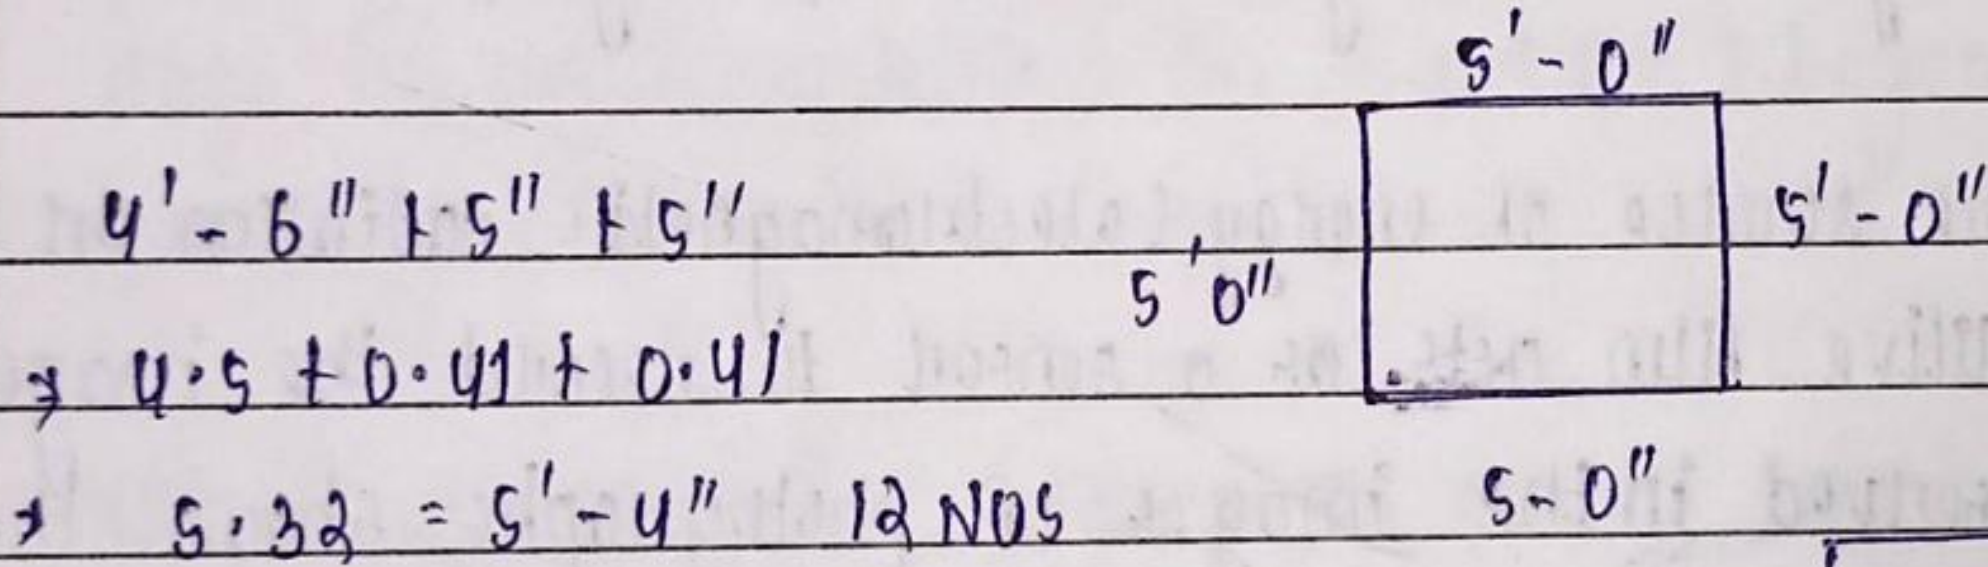 5'-0"
4'-6"+5"+5"
5'-0"
5'0"
⇒ 4.5+0.41+0.41
⇒ 5.32 = 5'-4" 12 NOS
5-0"